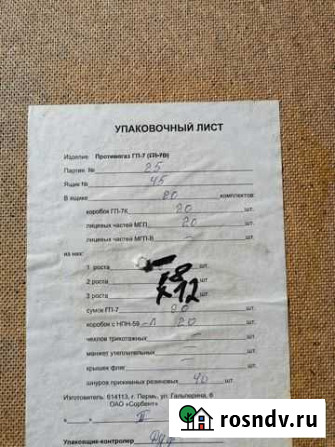 УПАКОВОЧНЫЙ ЛИСТ
Изделие: Противогаз ГП-7 (ГП-7В)
Партия № 25
Ящик № 45
В ящике 20 комплектов:
коробок ГП-7К 20 шт.
лицевых частей МГП 20 шт.
лицевых частей МГП-В — шт.
из них:
1 роста шт.
2 роста 8 шт.
3 роста 12 шт.
сумок ГП-7 20 шт.
коробок с НПН-59 -Л 20 шт.
чехлов трикотажных — шт.
манжет утеплительных — шт.
крышек фляг — шт.
шнуров прижимных резиновых 40 шт.
Изготовитель: 614113, г. Пермь, ул. Гальперина, 6
ОАО «Сорбент»
Упаковщик-контролер
rosndv.ru